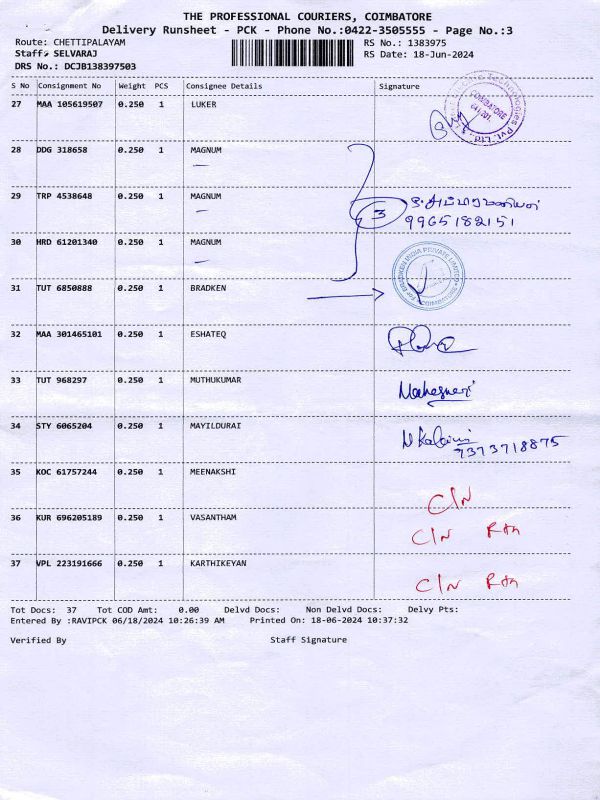 THE PROFESSIONAL COURIERS, COIMBATORE
Delivery Runsheet - PCK - Phone No.:0422-3505555 - Page No.:3
Route: CHETTIPALAYAM RS No.: 1383975
Staff: SELVARAJ RS Date: 18-Jun-2024
DRS No.: DCJB138397503
S No Consignment No Weight PCS Consignee Details Signature
27 MAA 105619507 0.250 1 LUKER
COIMBATORE
28 DDG 318658 0.250 1 MAGNUM
29 TRP 4538648 0.250 1 MAGNUM
3
9965182151
30 HRD 61201340 0.250 1 MAGNUM
31 TUT 6850888 0.250 1 BRADKEN
For BRADKEN INDIA PRIVATE LIMITED
COIMBATORE
32 MAA 301465101 0.250 1 ESHATEQ
33 TUT 968297 0.250 1 MUTHUKUMAR
34 STY 6065204 0.250 1 MAYILDURAI N Kalaini
7373718875
35 KOC 61757244 0.250 1 MEENAKSHI C/N
36 KUR 696205189 0.250 1 VASANTHAM C/N
37 VPL 223191666 0.250 1 KARTHIKEYAN C/N
Tot Docs: 37 Tot COD Amt: 0.00 Delvd Docs: Non Delvd Docs: Delvy Pts:
Entered By :RAVIPCK 06/18/2024 10:26:39 AM Printed On: 18-06-2024 10:37:32
Verified By Staff Signature